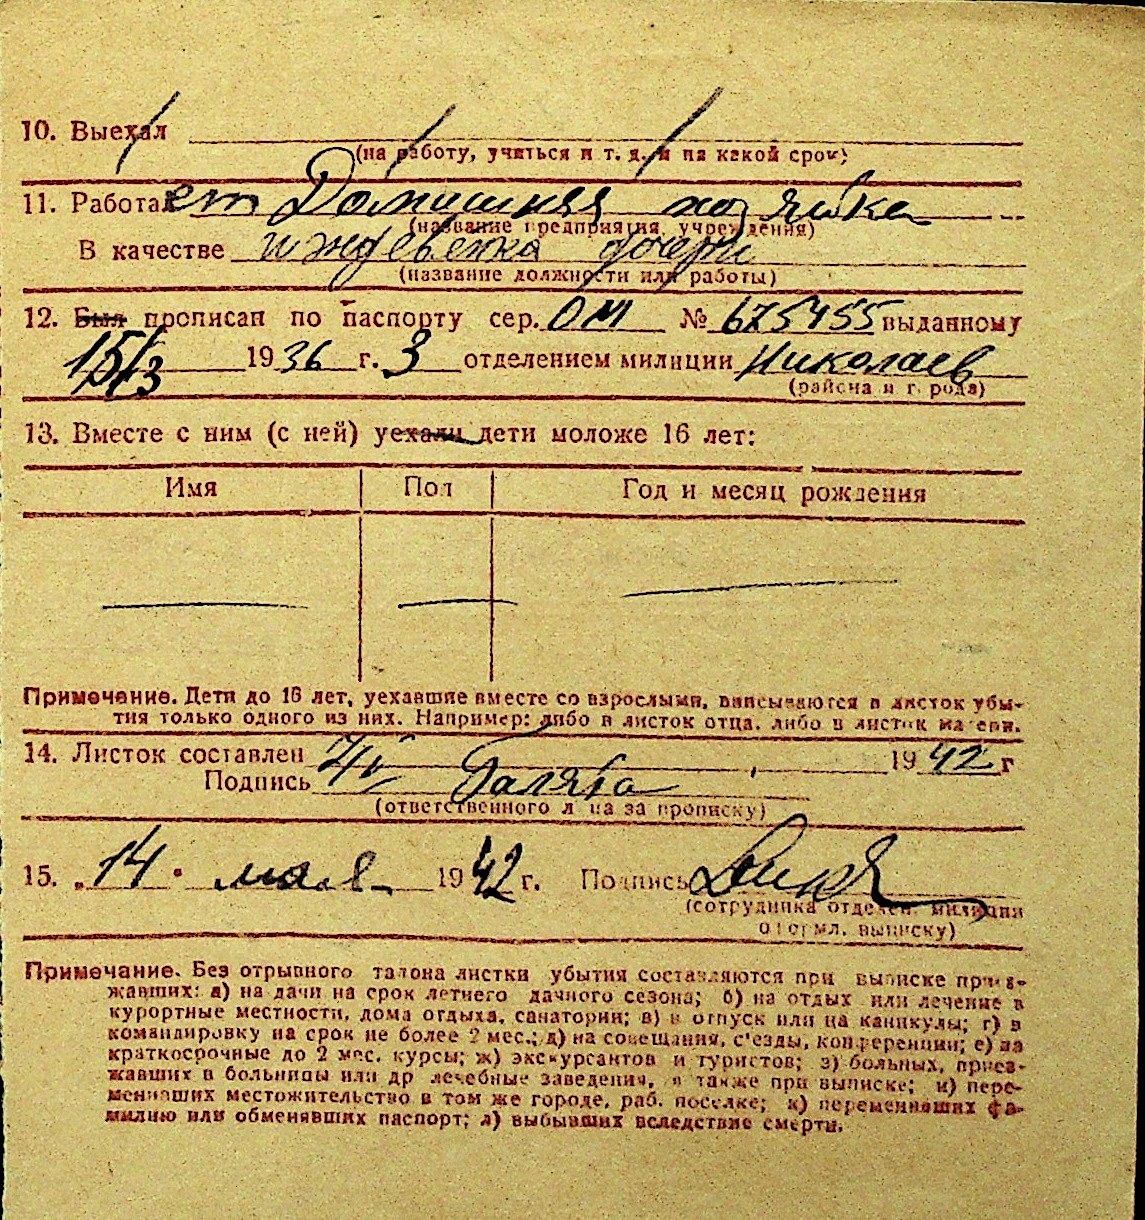 10. Выехал
(на работу, учиться и т. д. и на какой срок)
11. Работает Домашняя хозяйка
(название предприятия, учреждения)
В качестве иждевенка дочери
(название должности или работы)
12. Был прописан по паспорту сер. ОМ № 675455 выданному
15/3 1936 г. 3 отделением милиции Николаев
(района и города)
13. Вместе с ним (с ней) уехали дети моложе 16 лет:
Имя Пол Год и месяц рождения
Примечание. Дети до 16 лет, уехавшие вместе со взрослыми, вписываются в листок убы-
тия только одного из них. Например: либо в листок отца, либо в листок матери.
14. Листок составлен 1942 г
Подпись
(ответственного лица за прописку)
15. „14" мая 1942 г. Подпись
(сотрудника отделен. милиции
оформл. выписку)
Примечание. Без отрывного талона листки убытия составляются при выписке приез-
жавших: а) на дачи на срок летнего дачного сезона; б) на отдых или лечение в
курортные местности, дома отдыха, санатории; в) в отпуск или на каникулы; г) в
командировку на срок не более 2 мес.; д) на совещания, с'езды, конференции; е) на
краткосрочные до 2 мес. курсы; ж) экскурсантов и туристов; з) больных, приез-
жавших в больницы или др лечебные заведения, а также при выписке; и) пере-
менивших местожительство в том же городе, раб. поселке; к) переменивших фа-
милию или обменявших паспорт; л) выбывших вследствие смерти.